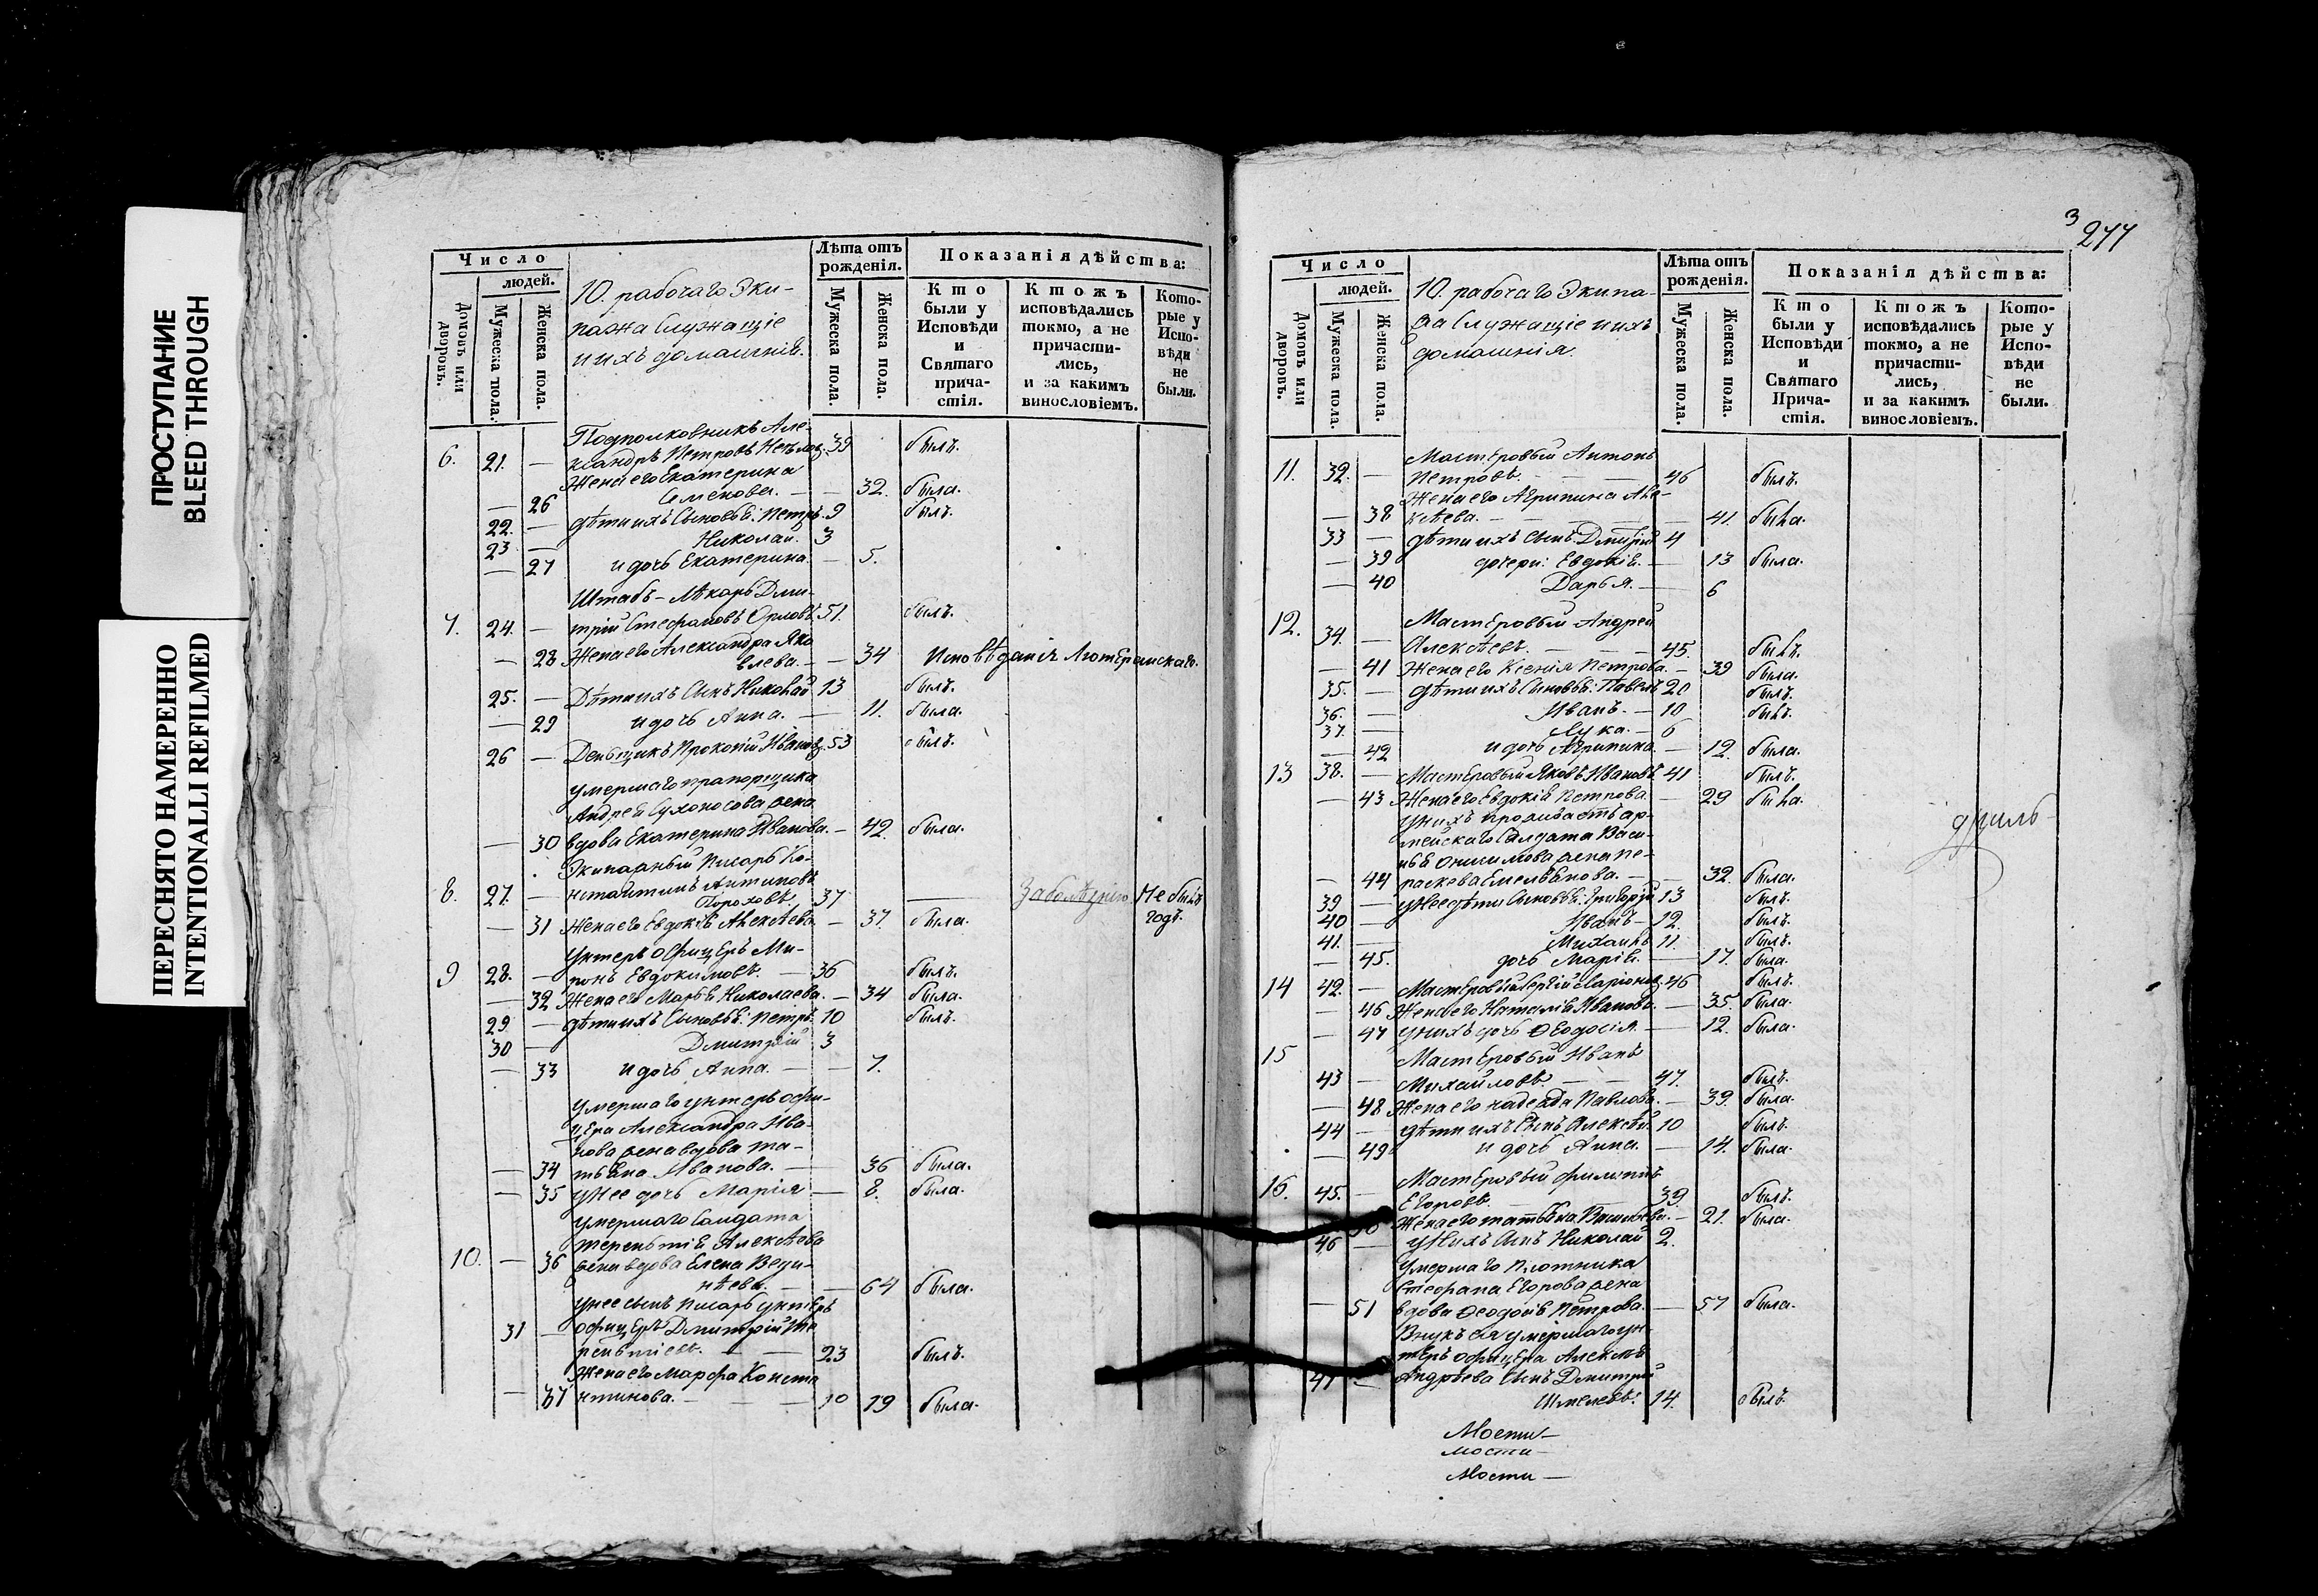 ПРОСТУПАНИЕ
BLEED THROUGH
ПЕРЕСНЯТО НАМЕРЕННО
INTENTIONALLI REFILMED
Число
людей.
Домовъ или дворовъ.
Мужеска пола.
Женска пола.
10. рабочаго Эки-
пажа Служащіе
и ихъ домашнія.
Лѣта отъ рожденія.
Мужеска пола.
Женска пола.
Показанія дѣйства:
Кто были у Исповѣди и Святаго причастія.
Ктожъ исповѣдались токмо, а не причасти-лись, и за какимъ винословіемъ.
Кото-рые у Испо-вѣди не были.
Подполковникъ Але-
6. 21. — ксандръ Петровъ 39 былъ.
Жена его Екатерина
— 26 Семенова. — — 32. была.
22. — дѣти ихъ Сыновья: Петръ. 9 былъ.
23 — Николай. 3
— 27 и дочь Екатерина. — 5.
Штабъ-Лѣкарь Дми-
7. 24. — трій Стефановъ Орловъ. 51. былъ.
— 28 Жена его Александра Яко
влева. — — 34 Исповѣданія Лютеранскаго.
25. — Дѣти ихъ Сынъ Николай 13 былъ.
— 29 и дочь Анна. — 11. была.
26 — Деньщикъ Прокопій Ивановъ. 53 былъ.
умершаго прапорщика
Андрея Сухоносова жена
— 30 вдова Екатерина Иванова. — 42. была.
Экипажный Писарь Ко-
8. 27. — нстантинъ Антиповъ
Пороховъ. 37 — За болѣзнію. Не былъ
— 31 Жена его Евдокія Алексѣева — 37. была. годъ.
Унтеръ офицеръ Ми-
9 28. — ронъ Евдокимовъ. — 36 былъ.
— 32 Жена его Марья Николаева. — 34 была.
29. — дѣти ихъ Сыновья: Петръ. 10 былъ.
30 — Дмитрій 3
— 33 и дочь Анна. — — 7.
умершаго унтеръ офи-
цера Александра Ива-
нова жена вдова Та-
— 34 тьяна Иванова. — 36 была.
— 35 у нее дочь Марія — 8. была.
умершаго Солдата
Терентія Алексѣева
10. — 36 жена вдова Елена
— — 64 была.
у нее сынъ Писарь унтеръ
31 — офицеръ Дмитрій Те
рентіевъ. — — 23 былъ.
Жена его Марфа Конста
— 37 нтинова. — — 19 была.
3
277
Число
людей.
Домовъ или дворовъ.
Мужеска пола.
Женска пола.
10. рабочаго Экипа-
жа Служащіе и ихъ
домашнія.
Лѣта отъ рожденія.
Мужеска пола.
Женска пола.
Показанія дѣйства:
Кто были у Исповѣди и Святаго Прича-стія.
Ктожъ исповѣдались токмо, а не причасти-лись, и за какимъ винословіемъ.
Кото-рые у Испо-вѣди не были.
Мастеровый Антонъ
11. 32. — Петровъ. — 46 былъ.
Жена его Агрипина Але-
— 38 ксѣева. — — 41. была.
33 — дѣти ихъ Сынъ Дмитрій 4
— 39 дочери: Евдокія. — 13 была.
— 40 Дарья. — 6
Мастеровый Андрей
12. 34. — Алексѣевъ. — 45. былъ.
— 41 Жена его Ксенія Петрова. — 39 была.
35. — дѣти ихъ Сыновья: Павелъ 20 былъ.
36. — Иванъ. — 10 былъ.
37. — Лука. — 6
— 42 и дочь Агрипина. — 12. была.
13 38. — Мастеровый Яковъ Ивановъ 41 былъ.
— 43 Жена его Евдокія Петрова. — 29 была.
У нихъ проживаетъ ар-
мейскаго Солдата Васи-
лья Онисимова жена Пе-
— 44 раскева Емельянова. — — 32. была.
39 — у нее дѣти Сыновья: Григорій 13 былъ.
40 — Иванъ — 12. былъ.
41. — Михаилъ 11. былъ.
— 45. дочь Марія. — 17. была.
14 42. — Мастеровый Сергій Ларіоновъ. 46 былъ.
— 46 Жена его Наталія Иванова. — 35. была.
— 47 у нихъ дочь Феодосія. — 12. была.
15 Мастеровый Иванъ
43 — Михайловъ. — — 47. былъ.
— 48 Жена его Надежда Павлова. — 39. была.
44 — дѣти ихъ Сынъ Алексѣй. 10 былъ.
— 49 и дочь Анна. — 14. была.
Мастеровый Филиппъ
16. 45. — Егоровъ. 39. былъ.
50 Жена его Татьяна Васильева. — 21. была.
46 — у нихъ Сынъ Николай 2.
Умершаго Плотника
Стефана Егорова жена
— 51 вдова Феодосія Петрова. — 57 была.
Внукъ ея умершаго ун-
теръ офицера Алексѣя
47 — Андрѣева Сынъ Дмитрій
Шмелевъ. 14. былъ.
Мости—
мости—
Мости—